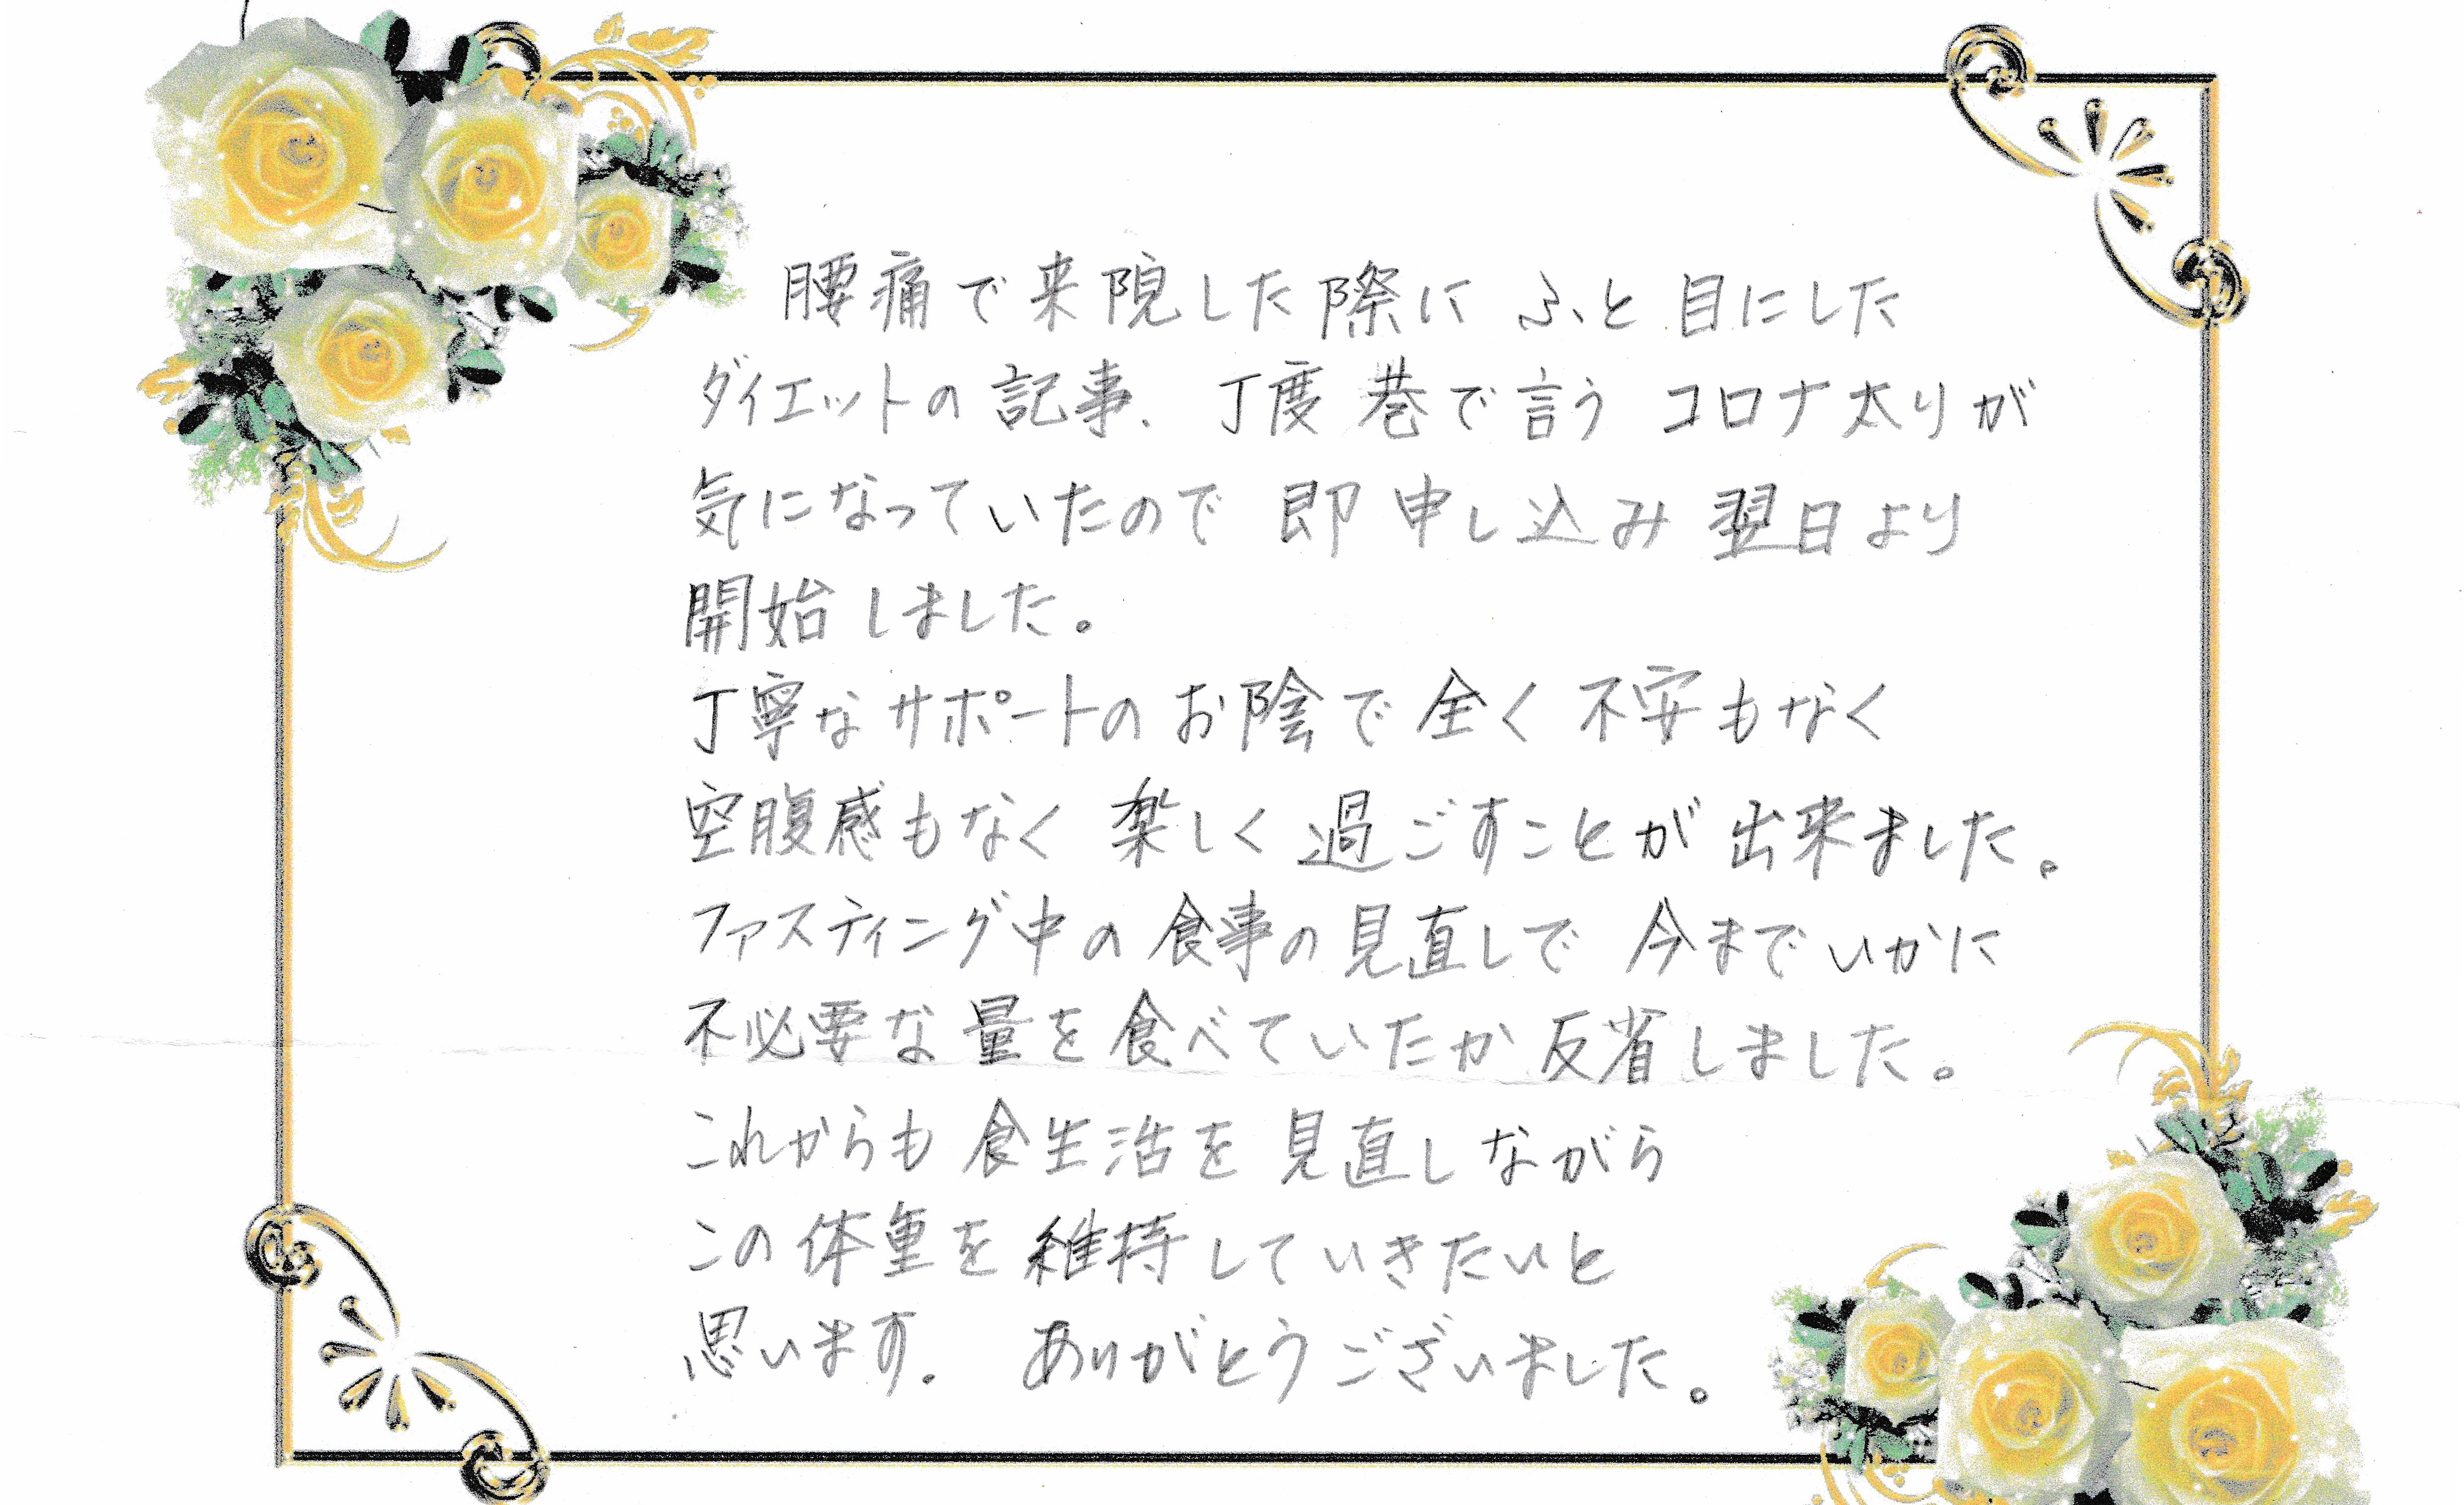 腰痛で来院した際に ふと 目にした
ダイエットの 記事、丁度 巷で言う コロナ太りが
気になっていたので 即 申し込み 翌日より
開始しました。
丁寧なサポートの お陰で 全く 不安もなく
空腹感もなく 楽しく 過ごすことが 出来ました。
ファスティング中の 食事の見直しで 今までいかに
不必要な 量を 食べていたか 反省しました。
これからも 食生活を 見直しながら
この 体重を 維持していきたいと
思います。 ありがとうございました。